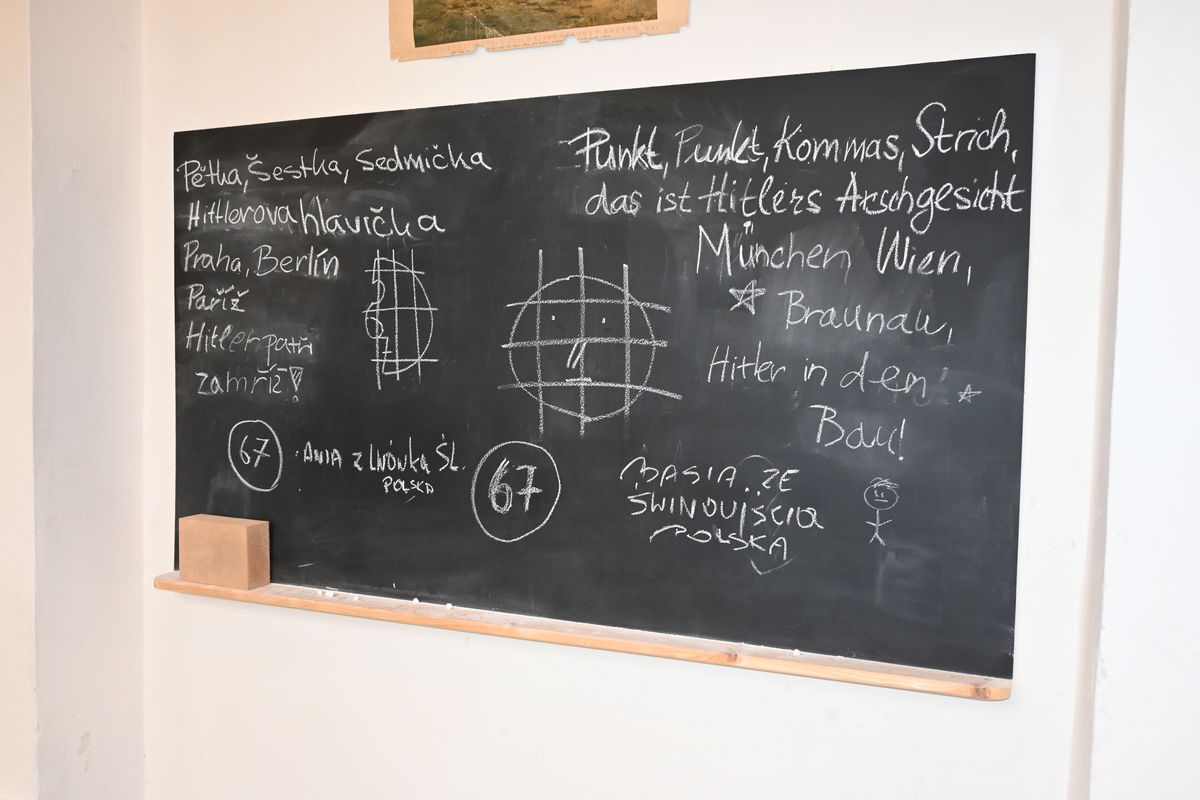 Pětka, Šestka, Sedmička
Hittlerova hlavička
Praha, Berlín
Paříž
Hitler patří
za mříž!
67
ANIA z LWÓWKA ŚL.
POLSKA
Punkt, Punkt, Kommas, Strich,
das ist Hitlers Arschgesicht
München Wien,
Braunau,
Hitler in den
Bau!
67
BASIA ZE
ŚWINOUJŚCIA
POLSKA